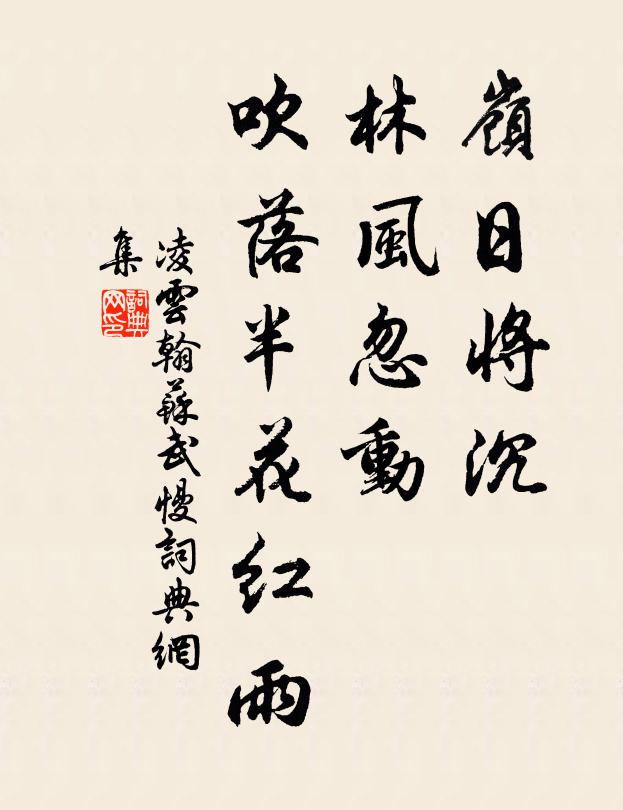 嶺日將沉
林風忽動
吹落半花紅雨
凌雲翰蘇武慢詞典網
集
詞典
网印